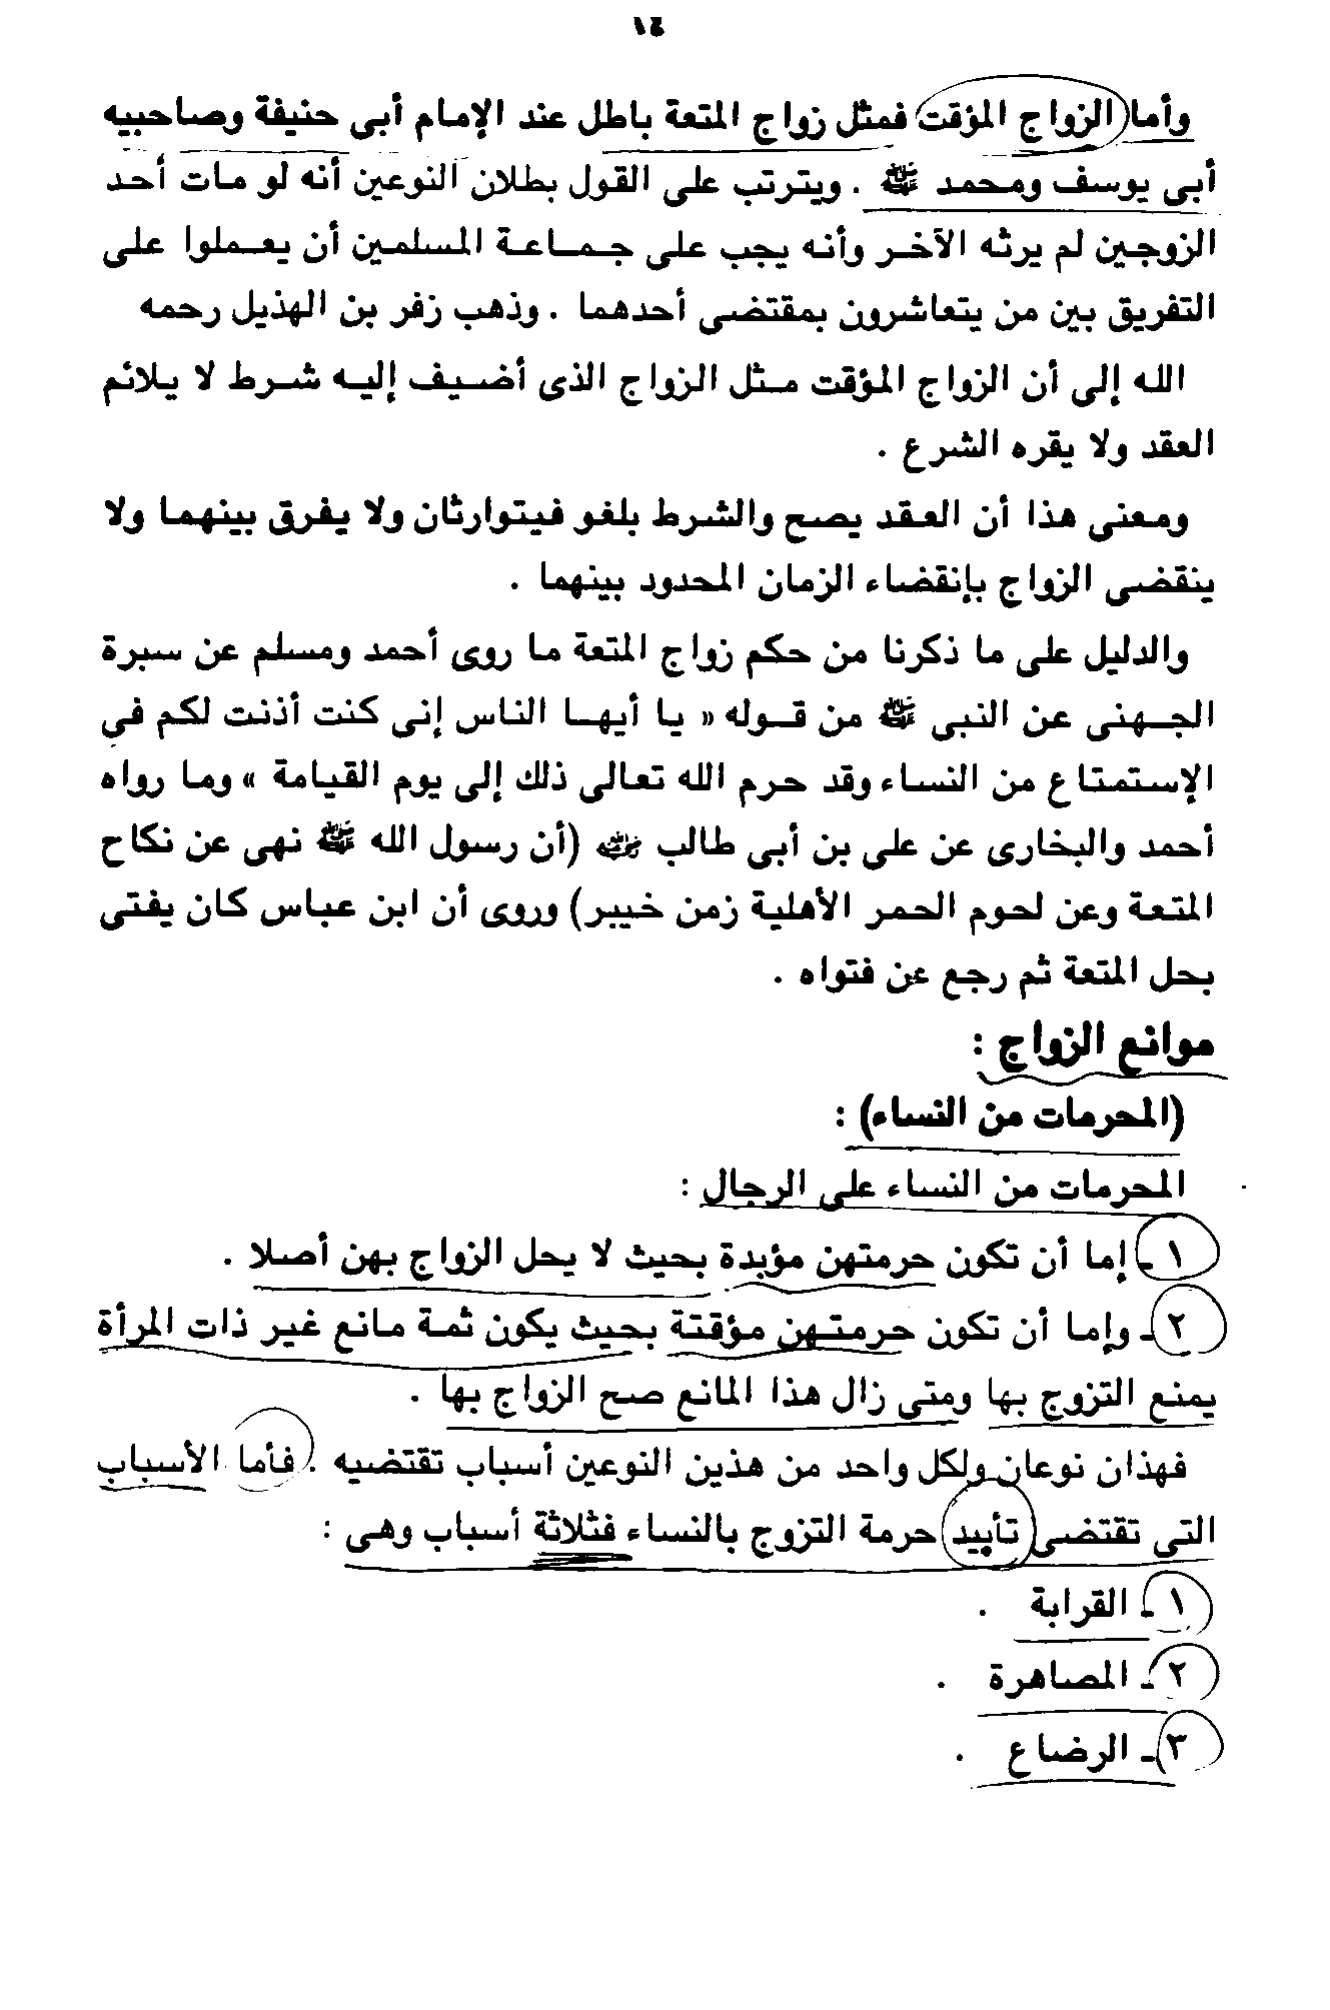 ١٤
وأما الزواج المؤقت فمثل زواج المتعة باطل عند الإمام أبى حنيفة وصاحبيه
أبى يوسف ومحمد ﷺ . ويترتب على القول بطلان النوعين أنه لو مات أحد
الزوجين لم يرثه الآخر وأنه يجب على جماعة المسلمين أن يعملوا على
التفريق بين من يتعاشرون بمقتضى أحدهما . وذهب زفر بن الهذيل رحمه
الله إلى أن الزواج المؤقت مثل الزواج الذى أضيف إليه شرط لا يلائم
العقد ولا يقره الشرع .
ومعنى هذا أن العقد يصح والشرط بلغو فيتوارثان ولا يفرق بينهما ولا
ينقضى الزواج بإنقضاء الزمان المحدود بينهما .
والدليل على ما ذكرنا من حكم زواج المتعة ما روى أحمد ومسلم عن سبرة
الجهنى عن النبى ﷺ من قوله « يا أيها الناس إنى كنت أذنت لكم فى
الإستمتاع من النساء وقد حرم الله تعالى ذلك إلى يوم القيامة » وما رواه
أحمد والبخارى عن على بن أبى طالب (أن رسول الله ﷺ نهى عن نكاح
المتعة وعن لحوم الحمر الأهلية زمن خيبر) وروى أن ابن عباس كان يفتى
بحل المتعة ثم رجع عن فتواه .
موانع الزواج :
(المحرمات من النساء) :
المحرمات من النساء على الرجال :
١ـ إما أن تكون حرمتهن مؤبدة بحيث لا يحل الزواج بهن أصلا .
٢ـ وإما أن تكون حرمتهن مؤقتة بحيث يكون ثمة مانع غير ذات المرأة
يمنع التزوج بها ومتى زال هذا المانع صح الزواج بها .
فهذان نوعان ولكل واحد من هذين النوعين أسباب تقتضيه . فأما الأسباب
التى تقتضى تأبيد حرمة التزوج بالنساء فثلاثة أسباب وهى :
١ـ القرابة .
٢ـ المصاهرة .
٣ـ الرضاع .